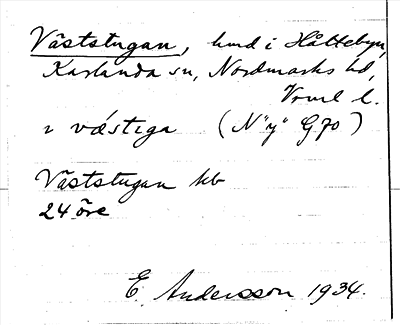 Väststugan, hmd i Håltebyn,
Karlanda sn, Nordmarks hd,
Vrml l.
2 væ̀stiga (N"y" G70)
Väststugan hb
24 öre
E. Andersson 1934.